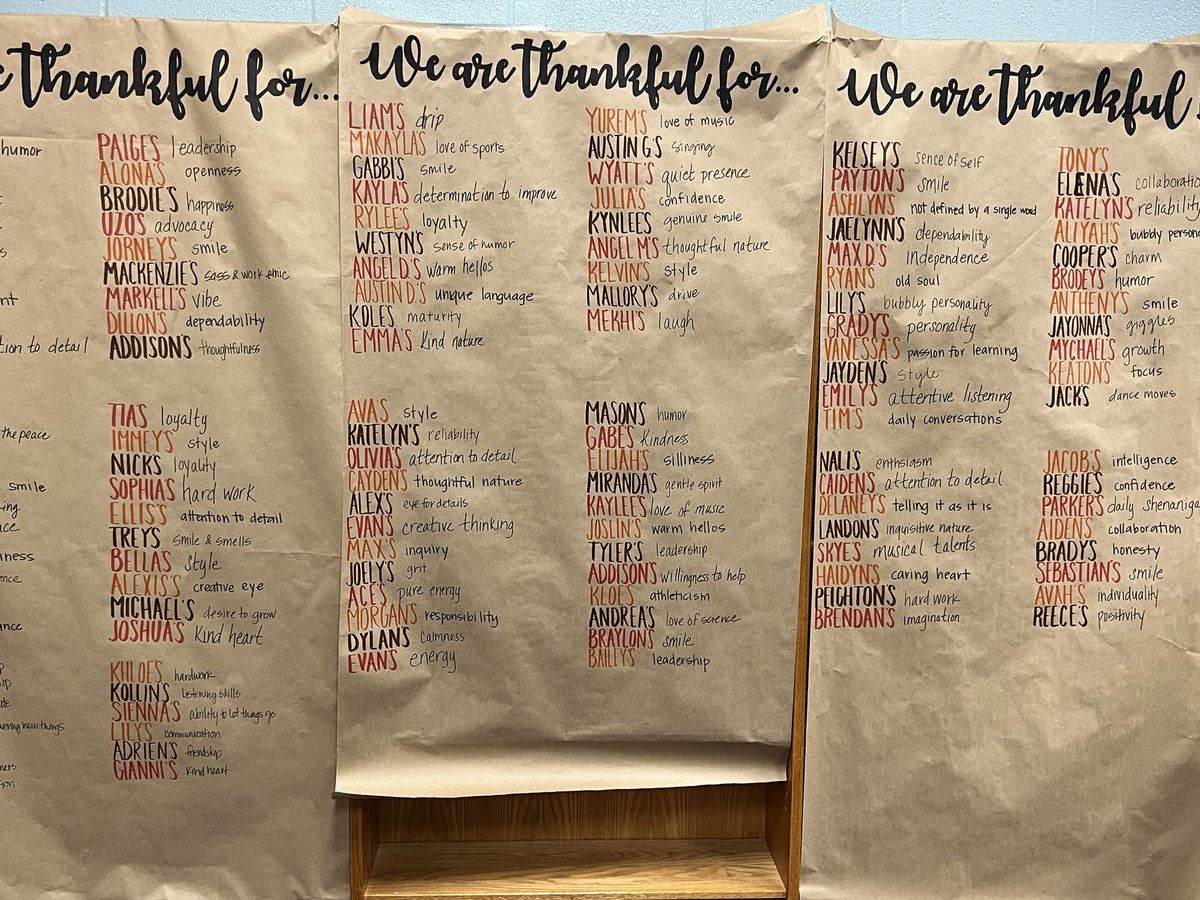 e thankful for...
humor
nt
tion to detail
the peace
smile
vering new things
PAIGE'S leadership
ALONA'S openness
BRODIE'S happiness
UZO'S advocacy
JORNEY'S smile
MACKENZIE'S sass & work ethic
MARKELL'S vibe
DILLON'S dependability
ADDISON'S thoughtfulness
TIA'S loyalty
IMMEY'S style
NICK'S loyality
SOPHIA'S hard work
ELLIS'S attention to detail
TREY'S smile & smells
BELLA'S style
ALEXIS'S creative eye
MICHAEL'S desire to grow
JOSHUA'S kind heart
KHLOE'S hardwork
KOLLIN'S listening skills
SIENNA'S ability to let things go
LILY'S communication
ADRIEN'S friendship
GIANNI'S kind heart
We are thankful for...
LIAM'S drip
MAKAYLA'S love of sports
GABBI'S smile
KAYLA'S determination to improve
RYLEE'S loyalty
WESTYN'S sense of humor
ANGEL D'S warm hellos
AUSTIN D'S unique language
KOLE'S maturity
EMMA'S kind nature
AVA'S style
KATELYN'S reliability
OLIVIA'S attention to detail
CAYDEN'S thoughtful nature
ALEX'S eye for details
EVAN'S creative thinking
MAX'S inquiry
JOELY'S grit
ACE'S pure energy
MORGAN'S responsibility
DYLAN'S calmness
EVAN'S energy
YUREM'S love of music
AUSTIN G'S singing
WYATT'S quiet presence
JULIA'S confidence
KYNLEE'S genuine smile
ANGEL M'S thoughtful nature
KELVIN'S style
MALLORY'S drive
MEKHI'S laugh
MASON'S humor
GABE'S kindness
ELIJAH'S silliness
MIRANDA'S gentle spirit
KAYLEE'S love of music
JOSLIN'S warm hellos
TYLER'S leadership
ADDISON'S willingness to help
KLOE'S athleticism
ANDREA'S love of science
BRAYLON'S smile
BAILEY'S leadership
We are thankful
KELSEY'S sense of self
PAYTON'S smile
ASHLYN'S not defined by a single word
JAELYNN'S dependability
MAX D'S independence
RYAN'S old soul
LILY'S bubbly personality
GRADY'S personality
VANESSA'S passion for learning
JAYDEN'S style
EMILY'S attentive listening
TIM'S daily conversations
NALI'S enthsiasm
CAIDEN'S attention to detail
DELANEY'S telling it as it is
LANDON'S inquisitive nature
SKYE'S musical talents
HAIDYN'S caring heart
PEIGHTON'S hard work
BRENDAN'S imagination
TONY'S
ELENA'S collaboratio
KATELYN'S reliability
ALIYAH'S bubbly person
COOPER'S charm
BRODEY'S humor
ANTHENY'S smile
JAYONNA'S giggles
MYCHAEL'S growth
KEATON'S focus
JACK'S dance moves
JACOB'S intelligence
REGGIE'S confidence
PARKER'S daily shenaniga
AIDEN'S collaboration
BRADY'S honesty
SEBASTIAN'S smile
AVAH'S individuality
REECE'S positivity